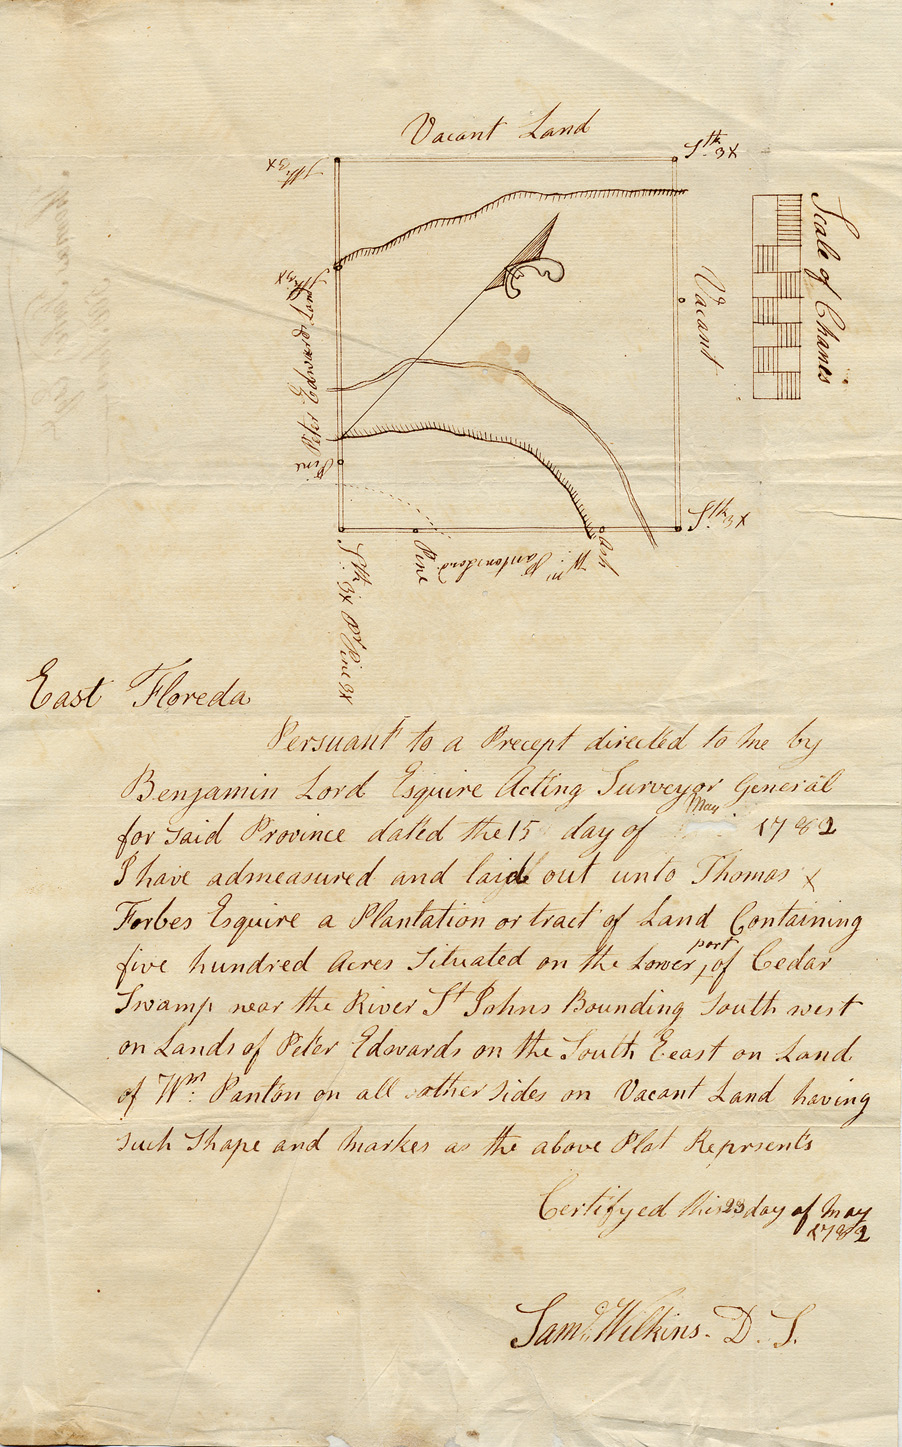 Vacant Land
Sth 3x
Sth 3x
Scale of Chanes
Vacant
Sth 3x
Peter Edwards Land
Pine
Sth 3x
Ash
Wm: Pantons Land
Pine
Sth 3x Pine 3x
East Floreda
Persuant to a Precept directed to me by
Benjamin Lord Esquire Acting Surveyor General
for said Province dated the 15 day of May 1782
I have admeasured and laid out unto Thomas x
Forbes Esquire a Plantation or tract of Land Containing
five hundred Acres Situated on the Lower part of Cedar
Swamp near the River St Johns Bounding South west
on Lands of Peter Edwards on the South Eeast on Land
of Wm: Panton on all other sides on Vacant Land having
such Shape and Markes as the above Plat Reprsents
Certifyed this 23 day of May
1782
Saml. Wilkins. D. S.